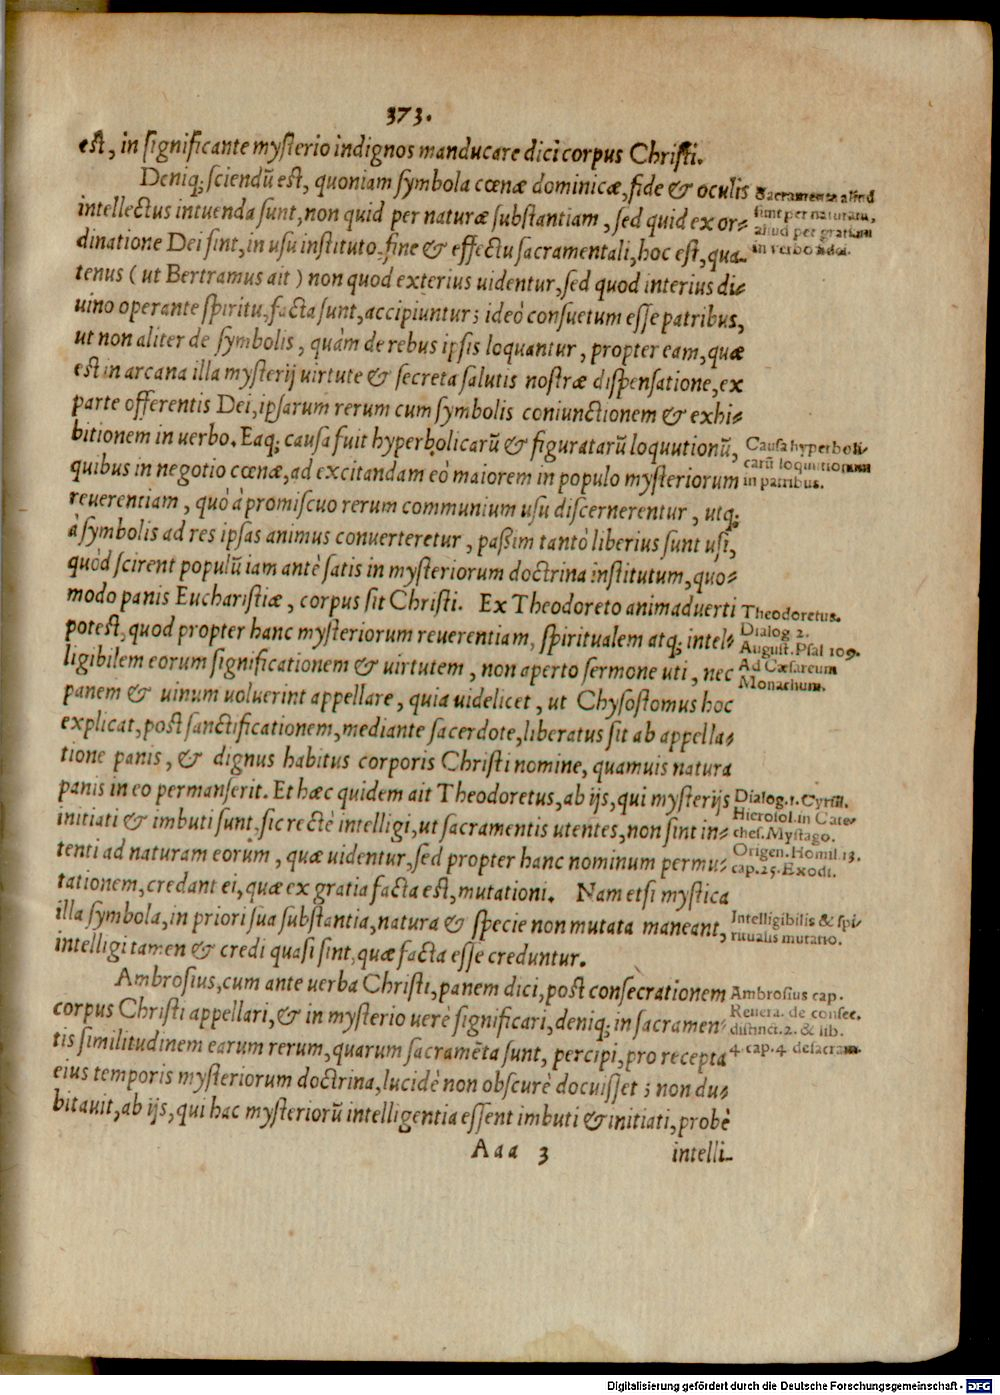 373.
est, in significante mysterio indignos manducare dici corpus Christi.
Deniq; sciendū est, quoniam symbola cœnæ dominicæ, fide & oculis
Sacramenta aliud
intellectus intuenda sunt, non quid per naturæ substantiam, sed quid ex or-
sunt per naturam,
aliud per gratiam
dinatione Dei sint, in usu instituto, fine & effectu sacramentali, hoc est, qua-
in verbo Dei.
tenus (ut Bertramus ait) non quod exterius uidentur, sed quod interius di-
uino operante spiritu, facta sunt, accipiuntur; ideò consuetum esse patribus,
ut non aliter de symbolis, quàm de rebus ipsis loquantur, propter eam, quæ
est in arcana illa mysterij uirtute & secreta salutis nostræ dispensatione, ex
parte offerentis Dei, ipsarum rerum cum symbolis coniunctionem & exhi-
bitionem in uerbo. Eaq; causa fuit hyperbolicarū & figuratarū loquutionū,
Causa hyperboli-
quibus in negotio cœnæ, ad excitandam eò maiorem in populo mysteriorum
carū loquutionum
in patribus.
reuerentiam, quò à promiscuo rerum communium usu discernerentur, utq;
à symbolis ad res ipsas animus conuerteretur, paßim tantò liberius sunt usi,
quòd scirent populū iam antè satis in mysteriorum doctrina institutum, quo-
modo panis Eucharistiæ, corpus sit Christi. Ex Theodoreto animaduerti
Theodoretus.
potest, quod propter hanc mysteriorum reuerentiam, spiritualem atq; intel-
Dialog. 2.
August. Psal 109.
ligibilem eorum significationem & uirtutem, non aperto sermone uti, nec
Ad Cæsareum
Monachum.
panem & uinum uoluerint appellare, quia uidelicet, ut Chysostomus hoc
explicat, post sanctificationem, mediante sacerdote, liberatus sit ab appella-
tione panis, & dignus habitus corporis Christi nomine, quamuis natura
panis in eo permanserit. Et hæc quidem ait Theodoretus, ab ijs, qui mysterijs
Dialog. 1. Cyrill.
initiati & imbuti sunt, sic rectè intelligi, ut sacramentis utentes, non sint in-
Hierosol. in Cate-
ches. Mystago.
tenti ad naturam eorum, quæ uidentur, sed propter hanc nominum permu-
Origen. Homil 13.
cap. 25. Exodi.
tationem, credant ei, quæ ex gratia facta est, mutationi. Nam etsi mystica
illa symbola, in priori sua substantia, natura & specie non mutata maneant,
Intelligibilis & spi-
ritualis mutatio.
intelligi tamen & credi quasi sint, quæ facta esse creduntur.
Ambrosius, cum ante uerba Christi, panem dici, post consecrationem
Ambrosius cap.
corpus Christi appellari, & in mysterio uerè significari, deniq; in sacramen-
Reuera. de consec.
distinct. 2. & lib.
tis similitudinem earum rerum, quarum sacramēta sunt, percipi, pro recepta
4. cap. 4. de sacram.
eius temporis mysteriorum doctrina, lucidè non obscurè docuisset; non du-
bitauit, ab ijs, qui hac mysteriorū intelligentia essent imbuti & initiati, probè
Aaa 3
intelli-
Digitalisierung gefördert durch die Deutsche Forschungsgemeinschaft - DFG